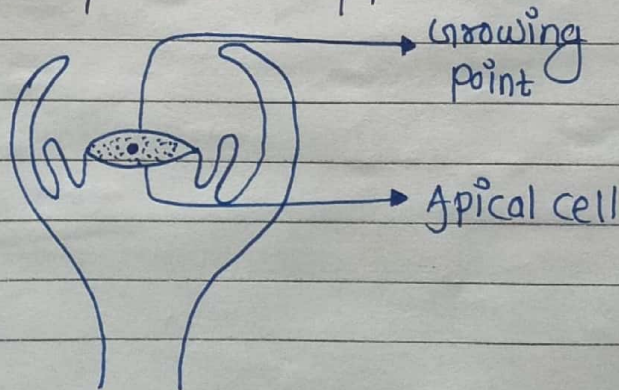 Growing
point
Apical cell